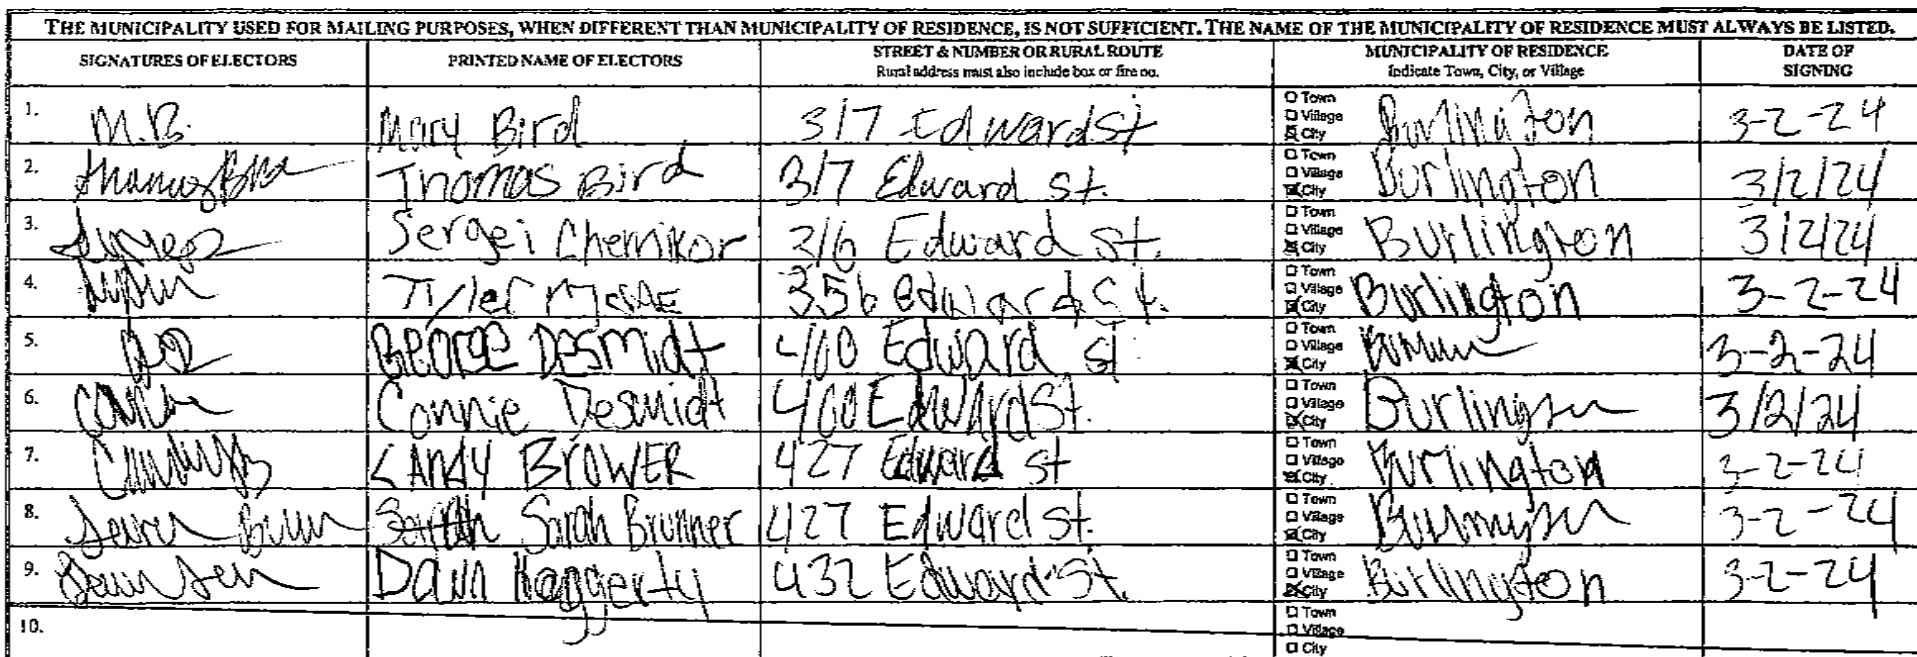 THE MUNICIPALITY USED FOR MAILING PURPOSES, WHEN DIFFERENT THAN MUNICIPALITY OF RESIDENCE, IS NOT SUFFICIENT. THE NAME OF THE MUNICIPALITY OF RESIDENCE MUST ALWAYS BE LISTED.
SIGNATURES OF ELECTORS PRINTED NAME OF ELECTORS STREET & NUMBER OR RURAL ROUTE MUNICIPALITY OF RESIDENCE DATE OF
Rural address must also include box or fire no. Indicate Town, City, or Village SIGNING
1. M.B. Mary Bird 317 Edward St Town Village City Burlington 3-2-24
2. Thomas Bird 317 Edward St. Town Village City Burlington 3/2/24
3. Sergei Chernikor 316 Edward St. Town Village City Burlington 3/2/24
4. Tyler 356 Edward St. Town Village City Burlington 3-2-24
5. George Desmidt 400 Edward St Town Village City 3-2-24
6. Connie Desmidt 400 Edward St. Town Village City Burlington 3/2/24
7. CANDY BROWER 427 Edward St Town Village City Burlington 3-2-24
8. Sarah Sarah Brunner 427 Edward St. Town Village City Burlington 3-2-24
9. Dawn Haggerty 432 Edward St. Town Village City Burlington 3-2-24
10. Town Village City